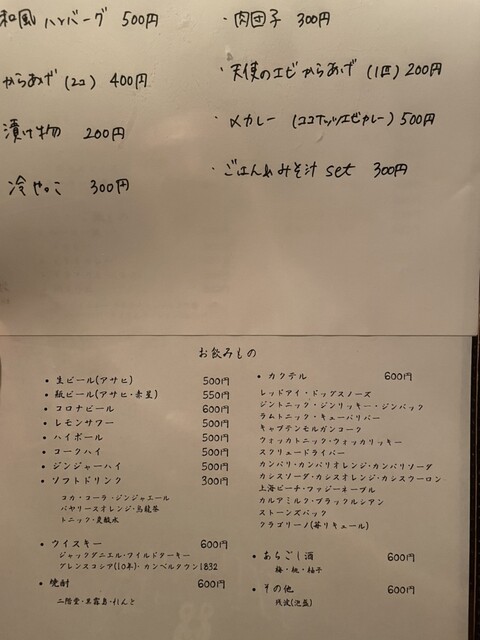 和風ハンバーグ 500円
からあげ (2コ) 400円
漬け物 200円
冷やっこ 300円
・肉団子 300円
・天使のエビからあげ (1匹) 200円
・〆カレー (ココナッツエビカレー) 500円
・ごはん&みそ汁 set 300円
お飲みもの
• 生ビール(アサヒ) 500円
• 瓶ビール(アサヒ・赤星) 550円
• コロナビール 600円
• レモンサワー 500円
• ハイボール 500円
• コークハイ 500円
• ジンジャーハイ 500円
• ソフトドリンク 300円
コカ・コーラ・ジンジャエール
バヤリースオレンジ・烏龍茶
トニック・炭酸水
• ウイスキー 600円
ジャックダニエル・ワイルドターキー
グレンスコシア(10年)・カンベルタウン1832
• 焼酎 600円
二階堂・黒霧島・れんと
• カクテル 600円
レッドアイ・ドッグスノーズ
ジントニック・ジンリッキー・ジンバック
ラムトニック・キューバリバー
キャプテンモルガンコーク
ウォッカトニック・ウォッカリッキー
スクリュードライバー
カンパリ・カンパリオレンジ・カンパリソーダ
カシスソーダ・カシスオレンジ・カシスウーロン
上海ピーチ・ファジーネーブル
カルアミルク・ブラックルシアン
ストーンズバック
クラゴリーノ(苺リキュール)
• あらごし酒 600円
梅・桃・柚子
• その他 600円
残波(泡盛)